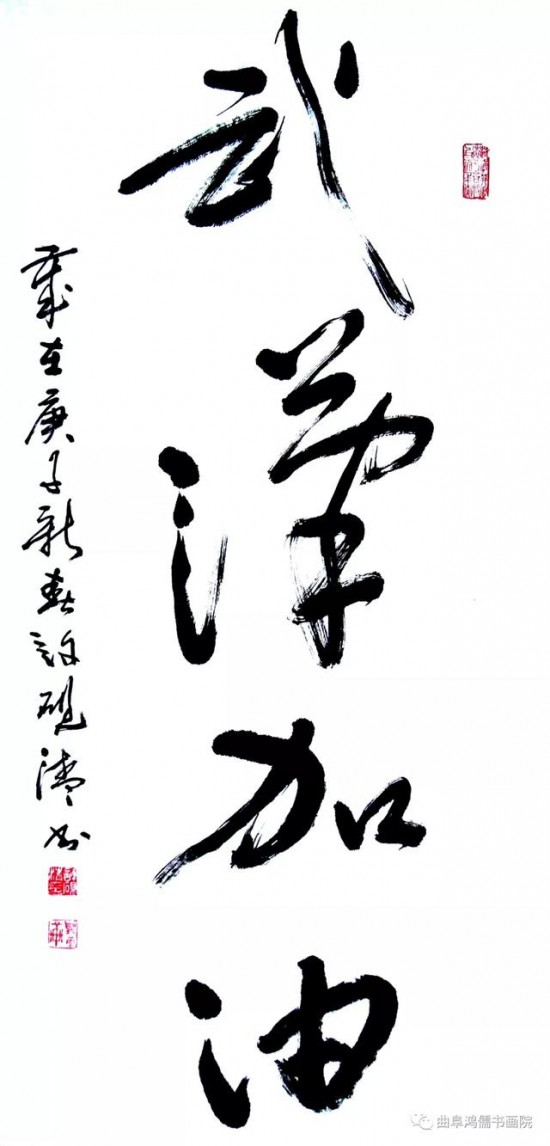 武汉加油
岁在庚子新春 砚清书
曲阜鸿儒书画院